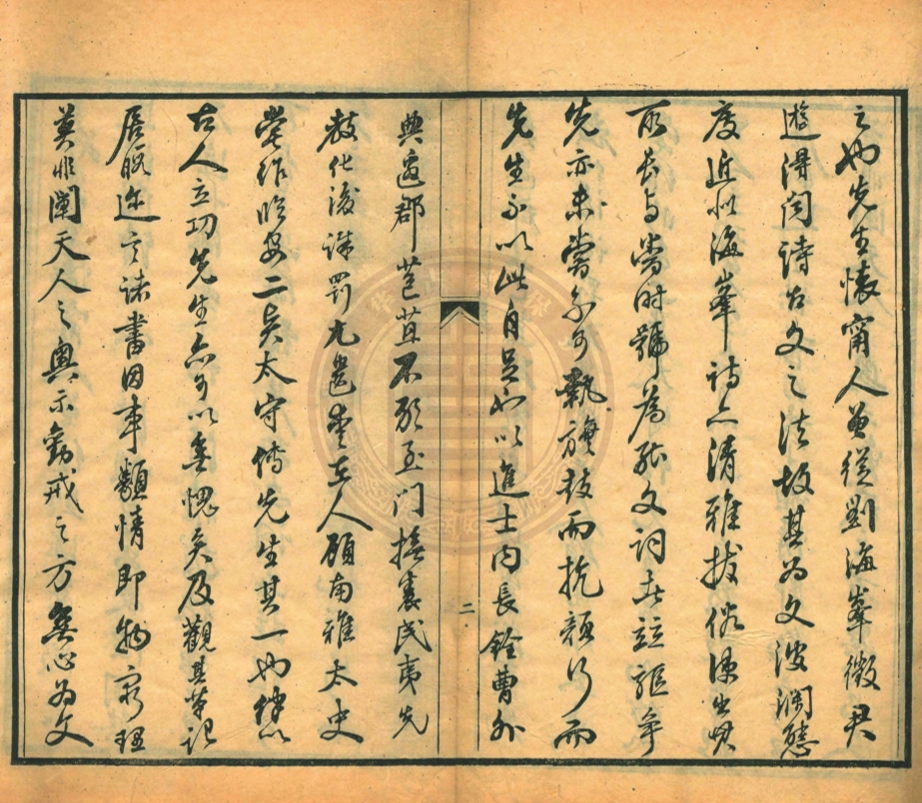 之也先生懷甯人曾從劉海峯徵君
遊得聞詩古文之法故其为文波瀾態
度近似海峯詩亦清雅拔俗使出其
所長与當時號為能文詞者竝驅争
先亦未嘗不可執旗鼓而抗顏行而
先生不以此自足也以進士内長銓曹外
二
典邊郡苞苴不敢至门撫裏民夷先
教化後誅罰尤在人顧南雅太史
嘗作二吴太守傳先生其一也以
古人立功先生亦可以無愧矣及觀其筆記
居暇之諸書因事類情即物窮理
莫非闡天人之奥示勸戒之方無心为文